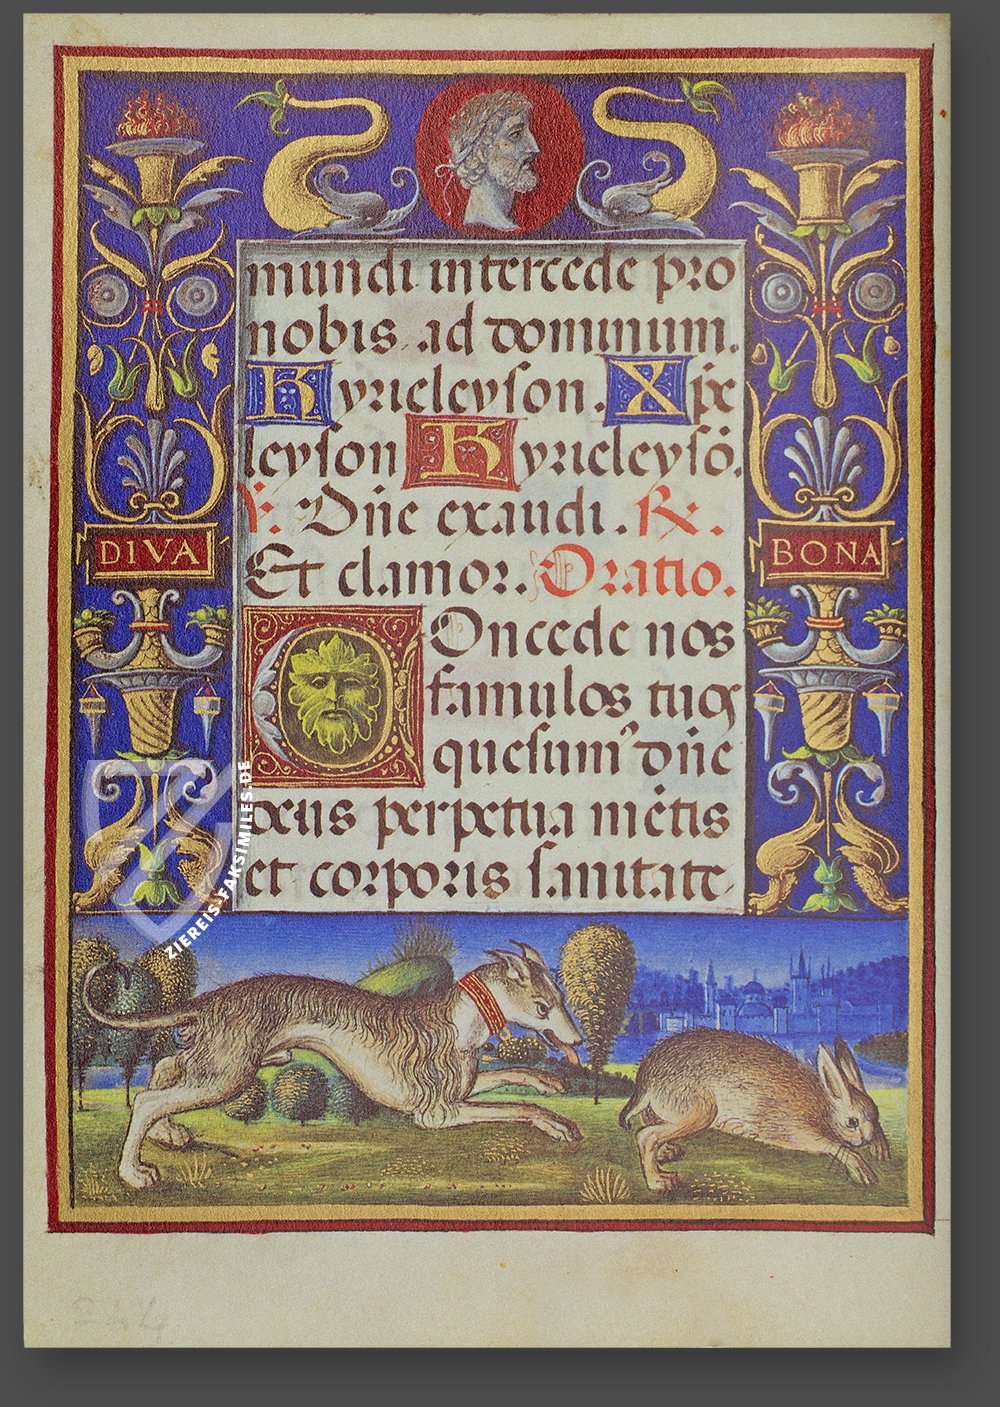 mundi intercede pro
nobis ad dominum.
Kyrieleyson. Xp̄e
leyson Kyrieleysō.
℣: Dn̄e exaudi. ℟.
Et clamor. Oratio.
COncede nos
famulos tuos
quesumꝰ dn̄e
deus perpetua mētis
et corporis sanitate
DIVA
BONA
244
ZIEREIS-FAKSIMILES.DE